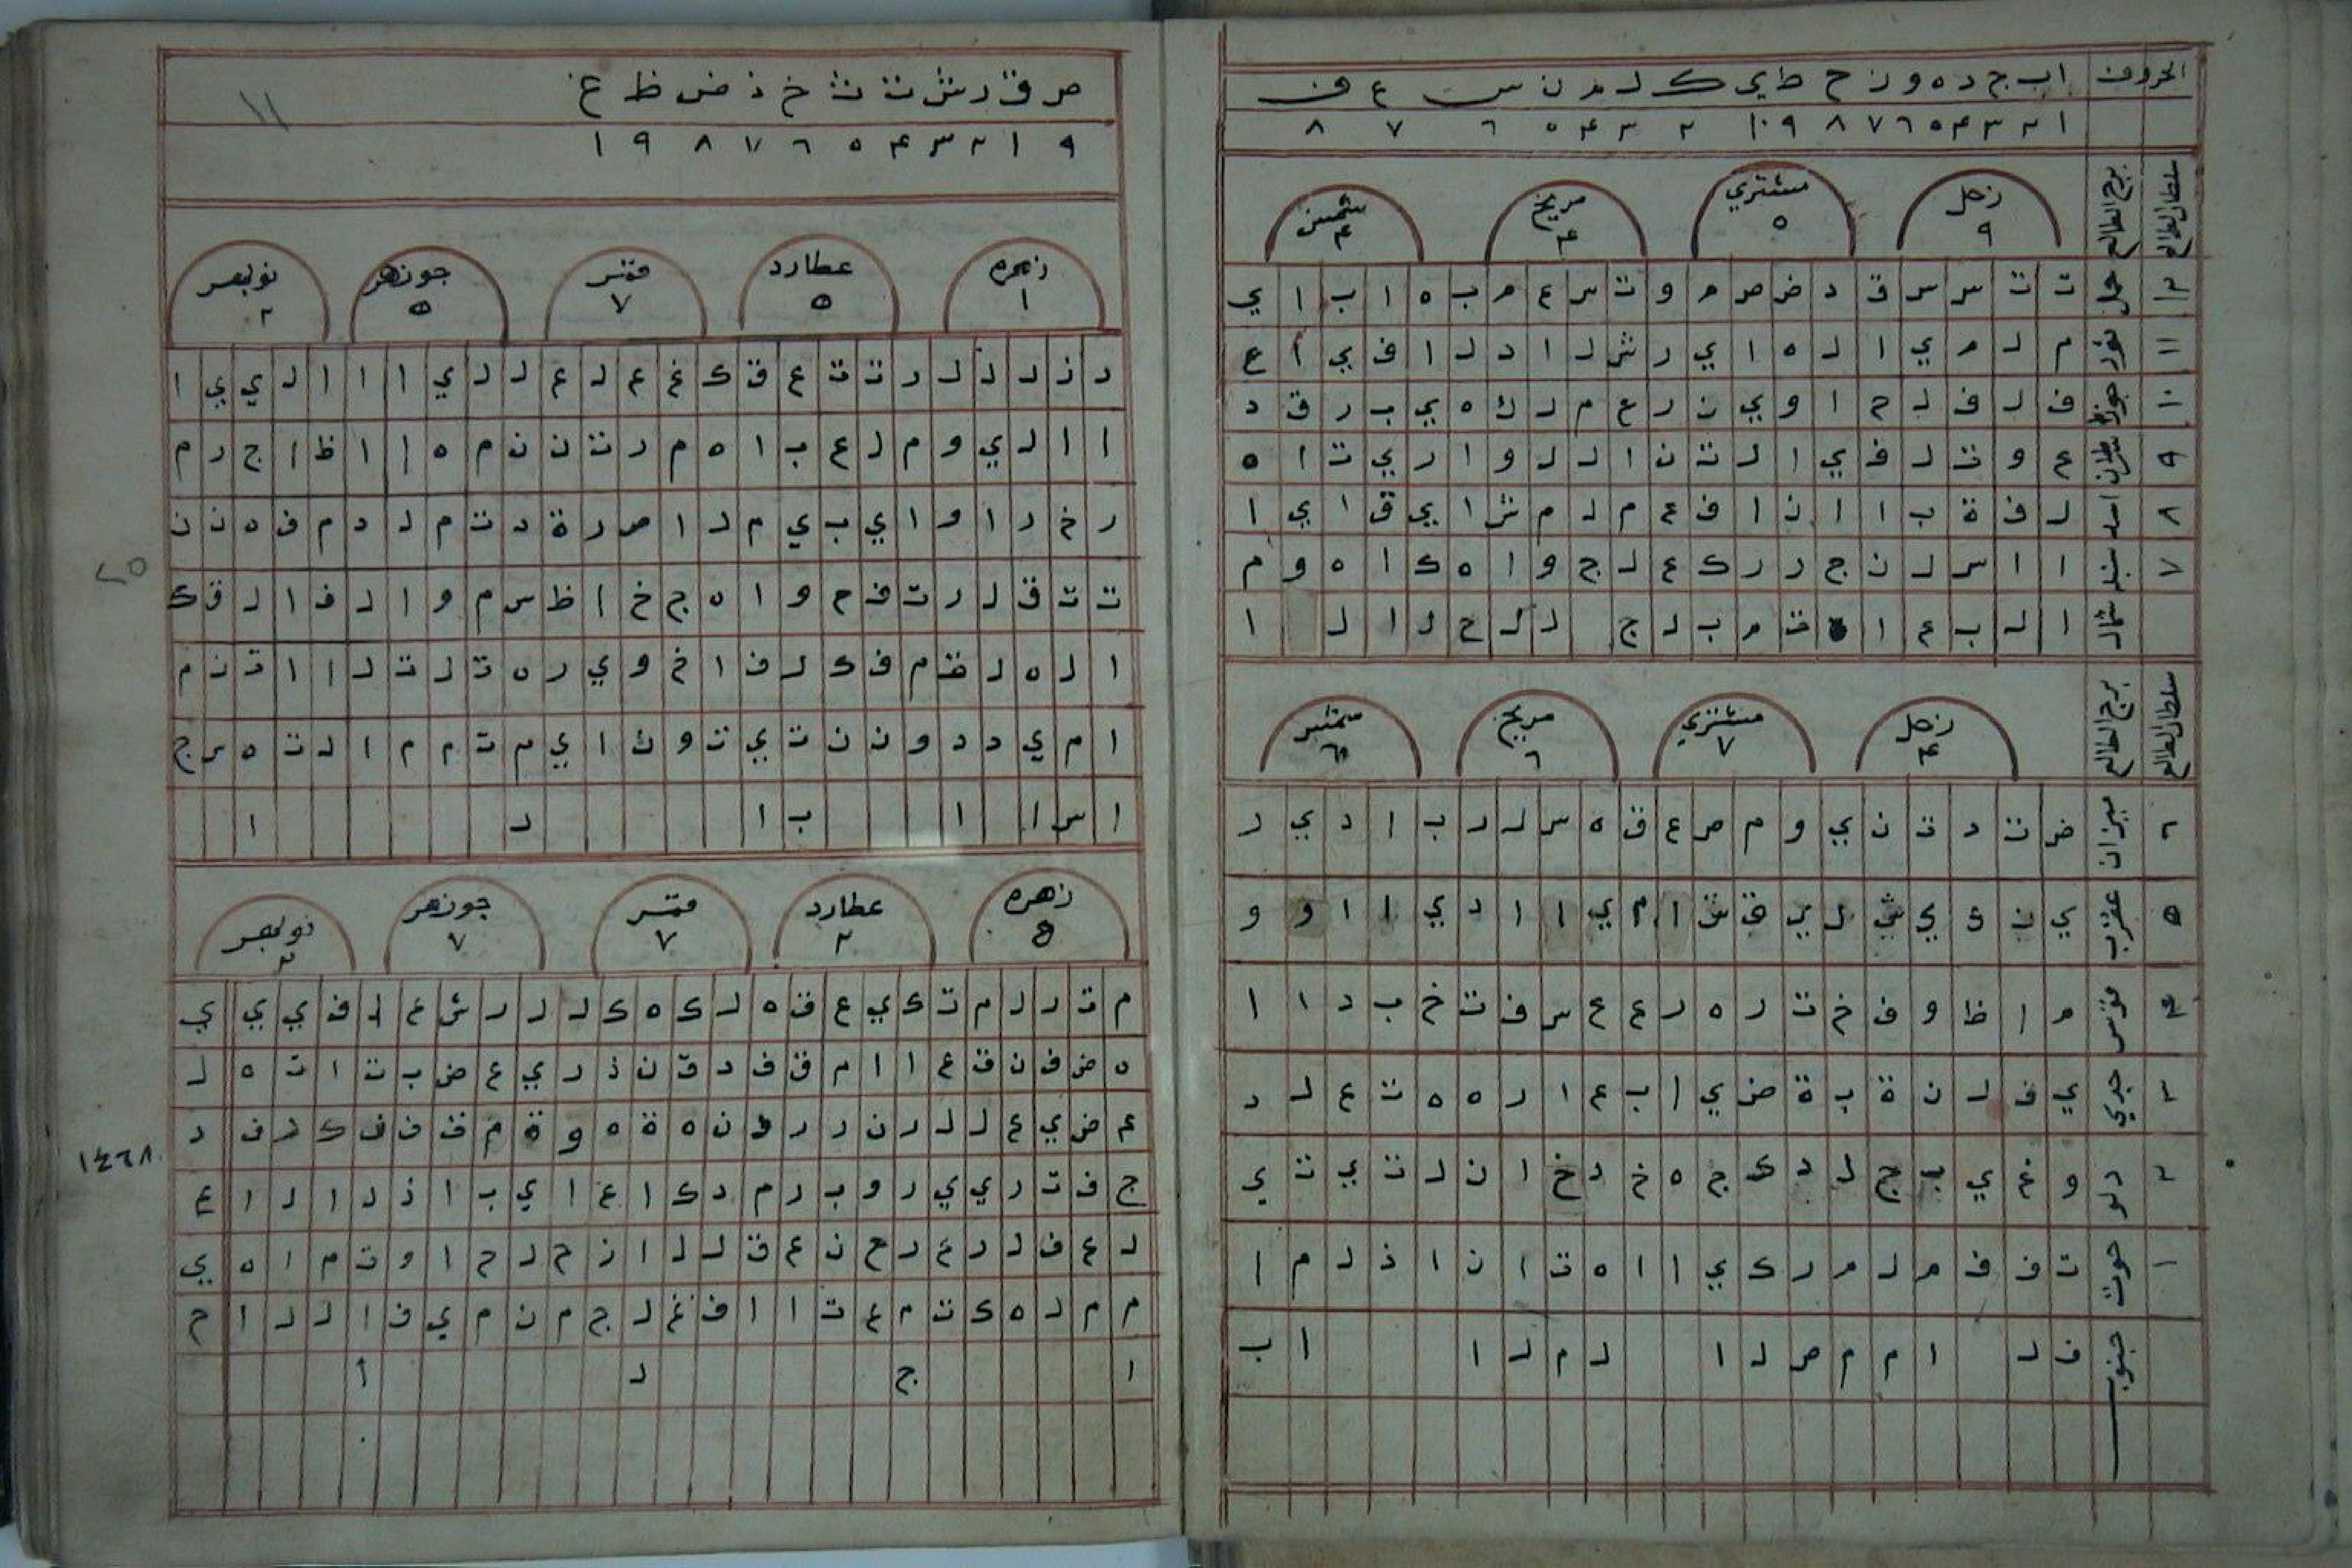 الحروف ا ب ج د ه و ز ح ط ي ك ل م ن س ع ف
١ ٢ ٣ ۴ ٥ ٦ ٧ ٨ ٩ ١٠ ٢ ٣ ۴ ٥ ٦ ٧ ٨
سلطان الطالع برج الطالع زحل ٩ مشتري ٥ مريخ ۴ شمس ۴
١٢ حمل ت ت س س ق د ض ص م و ت س ع م ب ه ا ب ا ي
١١ ثور م ل م ي ا ل ه ا ي ر ش ل ا د ل ا ف ي ا ع
١٠ جوزا ف ل ف ل ح ا و ي ن ر ع م ل ك ه ي ب ر ق د
٩ سرطان ع و ت ل ف ي ا ل ت ن ا ل ل و ا ر ي ت ا ه
٨ اسد ل ف ة ب ا ا ن ا ف ع م ل م ش ا ي ق ا ي ا
٧ سنبله ا ا س ل ن ج ر ر ك ع ل ج و ا ه ك ا ه و م
شمال ا ل ب ع ا ت م ب ل ج ل ل ل ح ل ا ل ا
سلطان الطالع برج الطالع زحل ۴ مشتري ٧ مريخ ٦ شمس
٦ ميزان ض ت د ت ن ي و م ص ع ق ه س ل ل ر ب ا د ي ر
٥ عقرب ي ن ق ي ش ل ي ق ش ا م ي ا ا د ي ا ا و و
۴ قوس م ا ظ و ف خ ت ر ه ر ع ع س ف ت خ ب د ا ا
٣ جدي ي ف ل ن ة ب ة ض ي ا ب ع ا ر ه ه ت ع ل د
٢ دلو و غ ي ب ج ل د ك ج ه خ د خ ا ن ل ت ي ت ي
١ حوت ت ف ف م ل م ر ك ي ا ا ه ت ا ن ا ذ ل م ا
جنوب ف ل ا م م ص ل ا ل م ل ا ا ب
ص ق ر ش ت ث خ ذ ض ظ غ
١١
٩ ١ ٢ ٣ ۴ ٥ ٦ ٧ ٨ ٩ ١
زهره ١ عطارد ٥ قمر ٧ جوزهر ٥ نوبهر ٢
د ز ل ل ل ر ت ت ع ق ك غ ع ل ع ل ل ي ا ا ا ل ي ي ا
ا ا ل ي و م ل ع ب ا ه م ر ت ن ن م ه ا ا ظ ا ج ر م
ر خ ر ا و ا ي ب ي م ل ا ص ر ة د ت م ل د م ف ه ن ن
ت ت ق ل ر ت ف ح و ا ه ج خ ا ظ س م و ا ل ف ا ل ق ك
ا ل ه ل ت م ف ك ل ف ا خ و ي ر ه ت ل ت ل ا ا ت ن م
ا م ي د د و ن ن ت ي ت و ك ا ي م ت م م ا ل ت ه س ج
ا س ا ا ب ا ل ا
زهره عطارد ٢ قمر ٧ جوزهر ٧ نوبهر
م ت ر ل م ت ك ي ع ق ه ل ك ه ك ل ل ر ش ع ل ف ي ي ي
ه ض ف ن ق ع ا ا م ق ف د ق ن ذ ر ي ع ض ب ت ا ت ه ل
ع ض ي ع ل ل ر ن ر ر ط ن ه ة ه و ة م ق ف ف ك ر ف د
ج ف ت ر ي ي ر و ب ر م د ك ا ع ا ي ب ا ذ ل ا ل ا ع
ل ع ف ل ر ع ر ح ن ع ق ل ل ا ز ح ل ح ا و ت م ا ه ي
م م ل ه ك ت م ع ت ا ا ف غ ل ج م ن م ي ف ا ل ل ا ح
ا ج ل ا
١٤٦٨